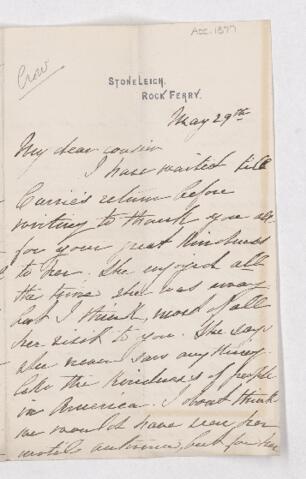 Acc. 1877
Crow
STONELEIGH,
ROCK FERRY.
May 29th
My dear cousin
I have waited till
Carrie's return before
writing to thank you all
for your great kindness
to her. She enjoyed all
the time she was away
but I think, most of all
her visit to you. She says
she never saw anything
like the kindness of people
in America. I don't think
we would have seen her
until autumn, but for her